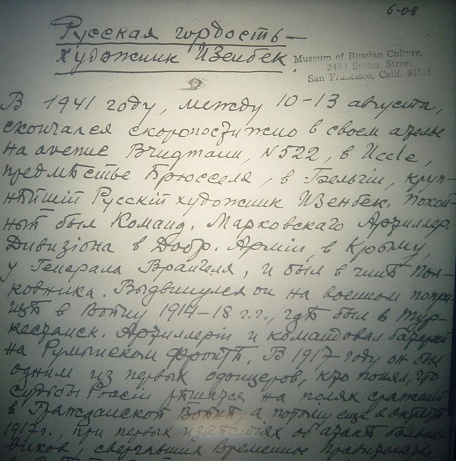 6-08
Русская гордость –
художник Изенбек.
Museum of Russian Culture,
2450 Sutter Street
San Francisco, Calif.
В 1941 году, между 10-13 августа,
скончался скоропостижно в своем ателье
на avenue Бругманн, N522, в Uccle,
предмѣстье Брюсселя, в Бельгіи, круп-
нѣйшій Русскій художник Изенбек. Покой-
ный был Команд. Марковскаго Артиллер.
Дивизіона в Добр. Арміи, в Крыму,
у Генерала Врангеля, и был в чинѣ Пол-
ковника. Выдвинулся он на военном попри-
щѣ в Войну 1914-18 г.г., гдѣ был в Тур-
кестанск. Артиллеріи и командовал батареей
на Румынском Фронтѣ. В 1917 году он был
одним из первых офицеров, кто понял, что
судьбы Росіи рѣшатся на полях сраженій
в Гражданской Войнѣ, а потому еще в октябрѣ
1917 г., при первых извѣстіях об атакѣ больше-
виков, свергавших Временное Правительство